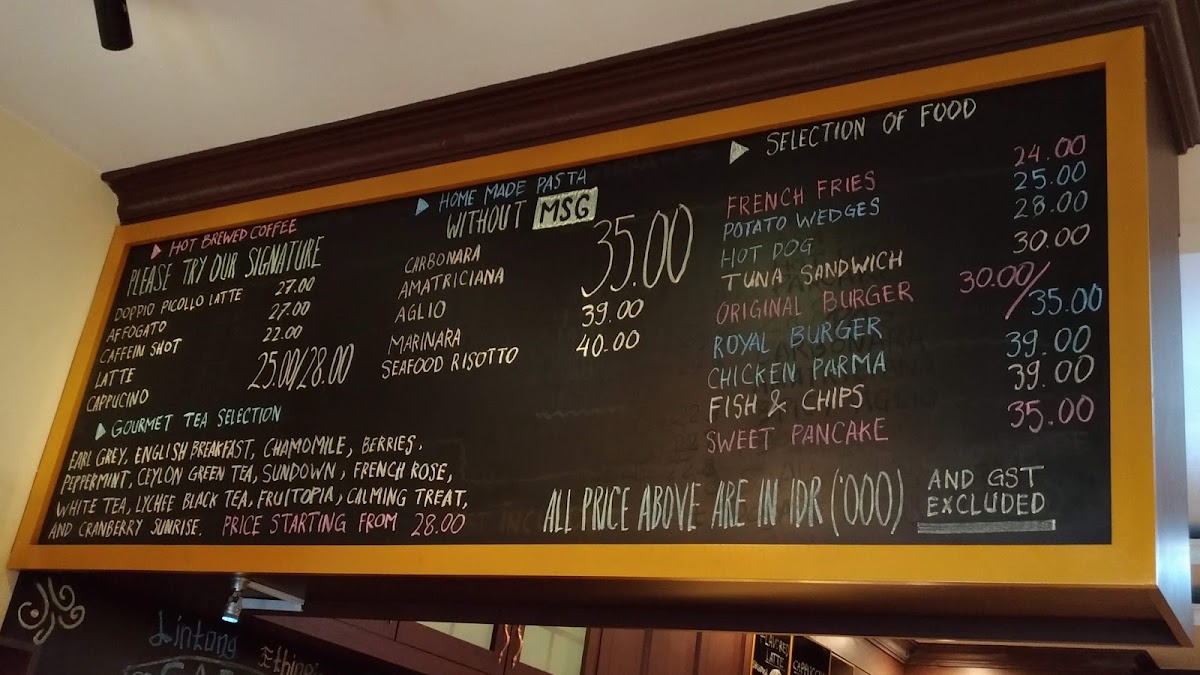 HOT BREWED COFFEE
PLEASE TRY OUR SIGNATURE
DOPPIO PICOLLO LATTE 27.00
AFFOGATO 27.00
CAFFEIN SHOT 22.00
LATTE
CAPPUCINO
25.00/28.00
GOURMET TEA SELECTION
EARL GREY, ENGLISH BREAKFAST, CHAMOMILE, BERRIES,
PEPPERMINT, CEYLON GREEN TEA, SUNDOWN, FRENCH ROSE,
WHITE TEA, LYCHEE BLACK TEA, FRUITOPIA, CALMING TREAT,
AND CRANBERRY SUNRISE. PRICE STARTING FROM 28.00
HOME MADE PASTA
WITHOUT MSG
CARBONARA
AMATRICIANA
AGLIO
35.00
MARINARA 39.00
SEAFOOD RISOTTO 40.00
SELECTION OF FOOD
FRENCH FRIES 24.00
POTATO WEDGES 25.00
HOT DOG 28.00
TUNA SANDWICH 30.00
ORIGINAL BURGER 30.00/
ROYAL BURGER 35.00
CHICKEN PARMA 39.00
FISH & CHIPS 39.00
SWEET PANCAKE 35.00
ALL PRICE ABOVE ARE IN IDR ('000)
AND GST
EXCLUDED
Lintong
FLAVORED
LATTE